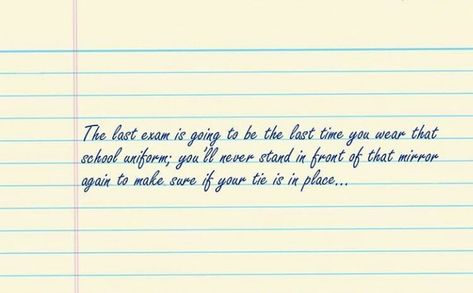 The last exam is going to be the last time you wear that
school uniform; you'll never stand in front of that mirror
again to make sure if your tie is in place...